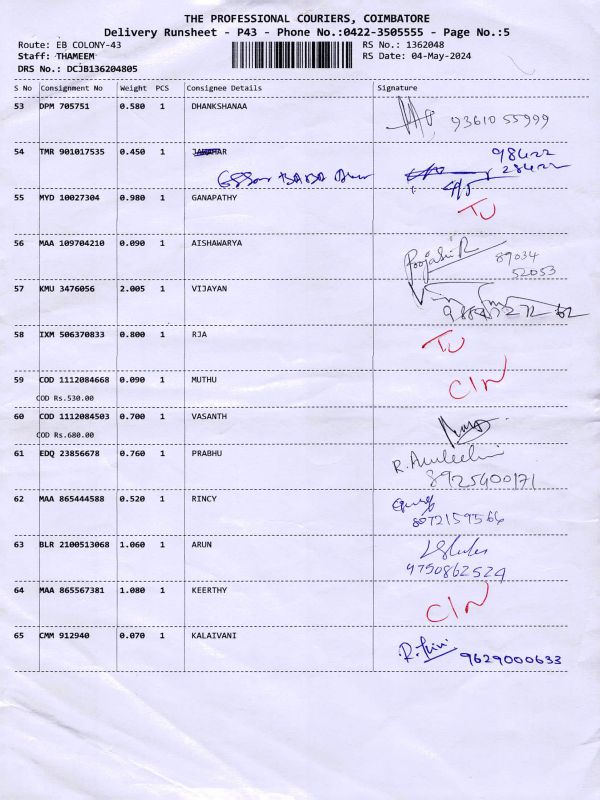 THE PROFESSIONAL COURIERS, COIMBATORE
Delivery Runsheet - P43 - Phone No.:0422-3505555 - Page No.:5
Route: EB COLONY-43 RS No.: 1362048
Staff: THAMEEM RS Date: 04-May-2024
DRS No.: DCJB136204805
S No Consignment No Weight PCS Consignee Details Signature
53 DPM 705751 0.580 1 DHANKSHANAA
93610 55999
54 TMR 901017535 0.450 1
98422
28422
4/5
55 MYD 10027304 0.980 1 GANAPATHY
56 MAA 109704210 0.090 1 AISHAWARYA
89034
52053
57 KMU 3476056 2.005 1 VIJAYAN
58 IXM 506370833 0.800 1 RJA
59 COD 1112084668 0.090 1 MUTHU
COD Rs.530.00
60 COD 1112084503 0.700 1 VASANTH
COD Rs.680.00
61 EDQ 23856678 0.760 1 PRABHU
8925400171
62 MAA 865444588 0.520 1 RINCY
8072159566
63 BLR 2100513068 1.060 1 ARUN
9750862524
64 MAA 865567381 1.080 1 KEERTHY
65 CMM 912940 0.070 1 KALAIVANI
9629000633